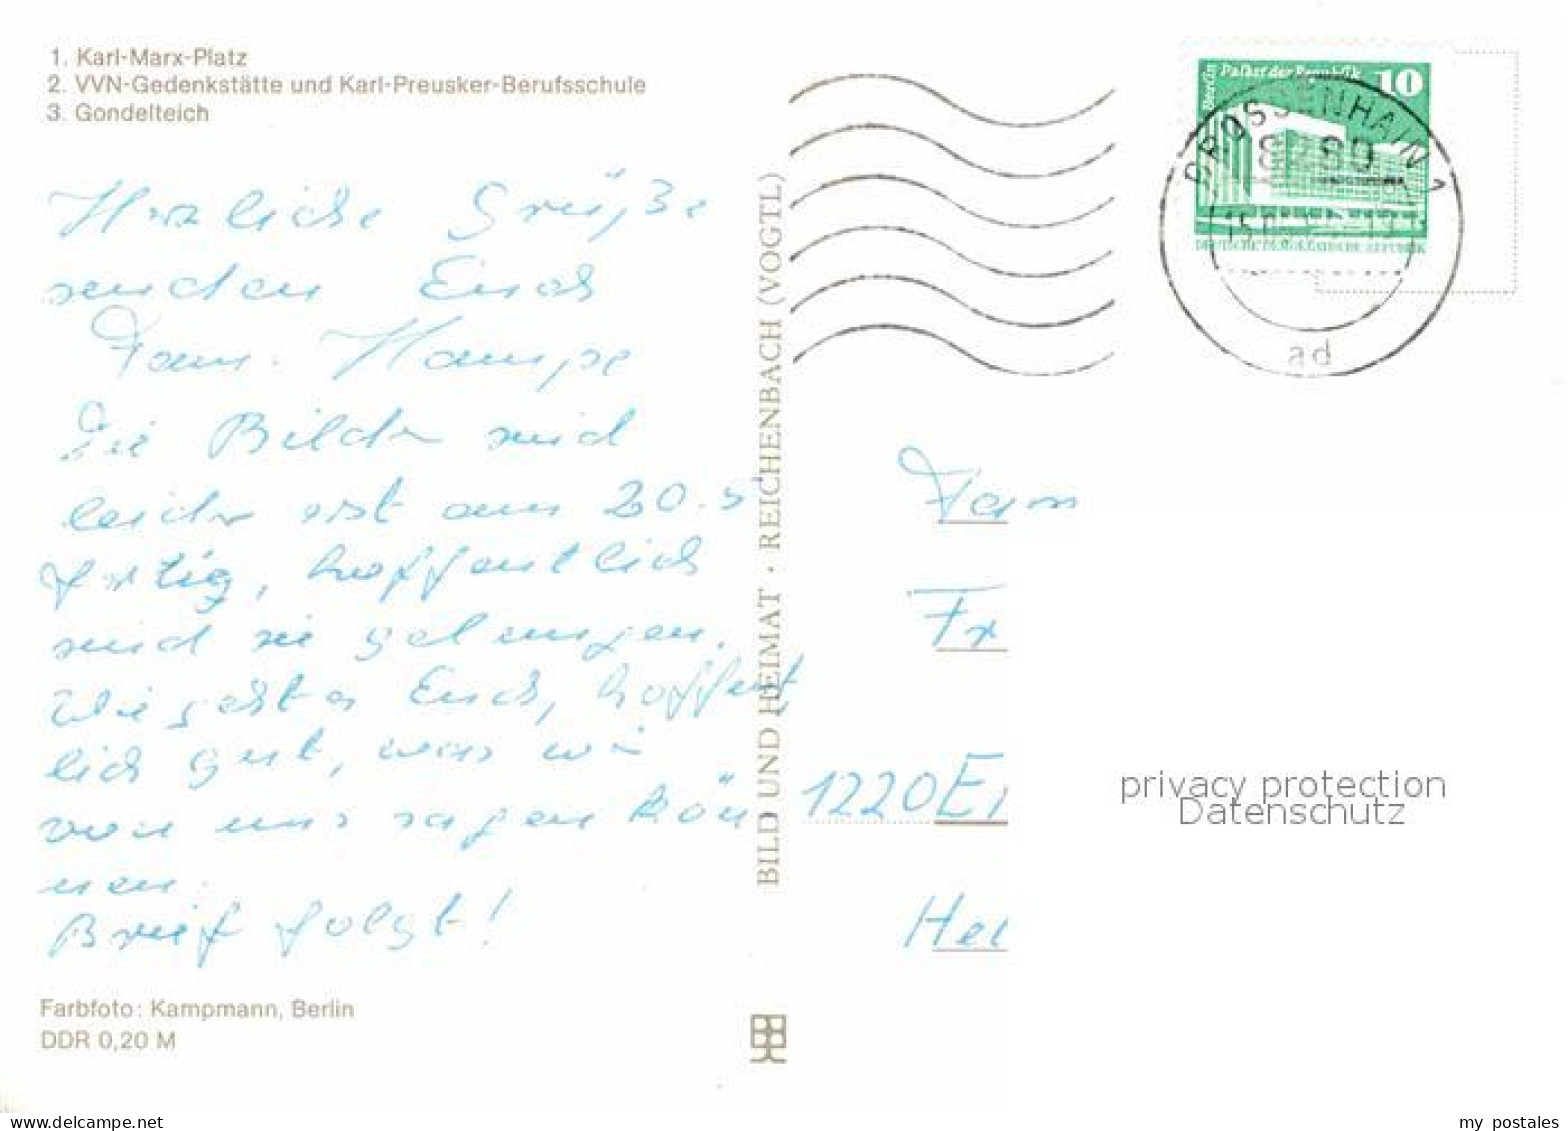 1. Karl-Marx-Platz
2. VVN-Gedenkstätte und Karl-Preusker-Berufsschule
3. Gondelteich
Herzliche Grüße
senden Euch
Fam. Hampe
Die Bilder sind
leider erst am 20.5
fertig, hoffentlich
sind sie gelungen.
Wie geht es Euch, hoffent
lich gut, was wir
von uns sagen kön
nen.
Brief folgt!
Farbfoto: Kampmann, Berlin
DDR 0,20 M
BILD UND HEIMAT · REICHENBACH (VOGTL)
Berlin Palast der Republik 10
DEUTSCHE DEMOKRATISCHE REPUBLIK
GROSSENHAIN 1
ad
Fam
1220
privacy protection
Datenschutz
www.delcampe.net
my_postales